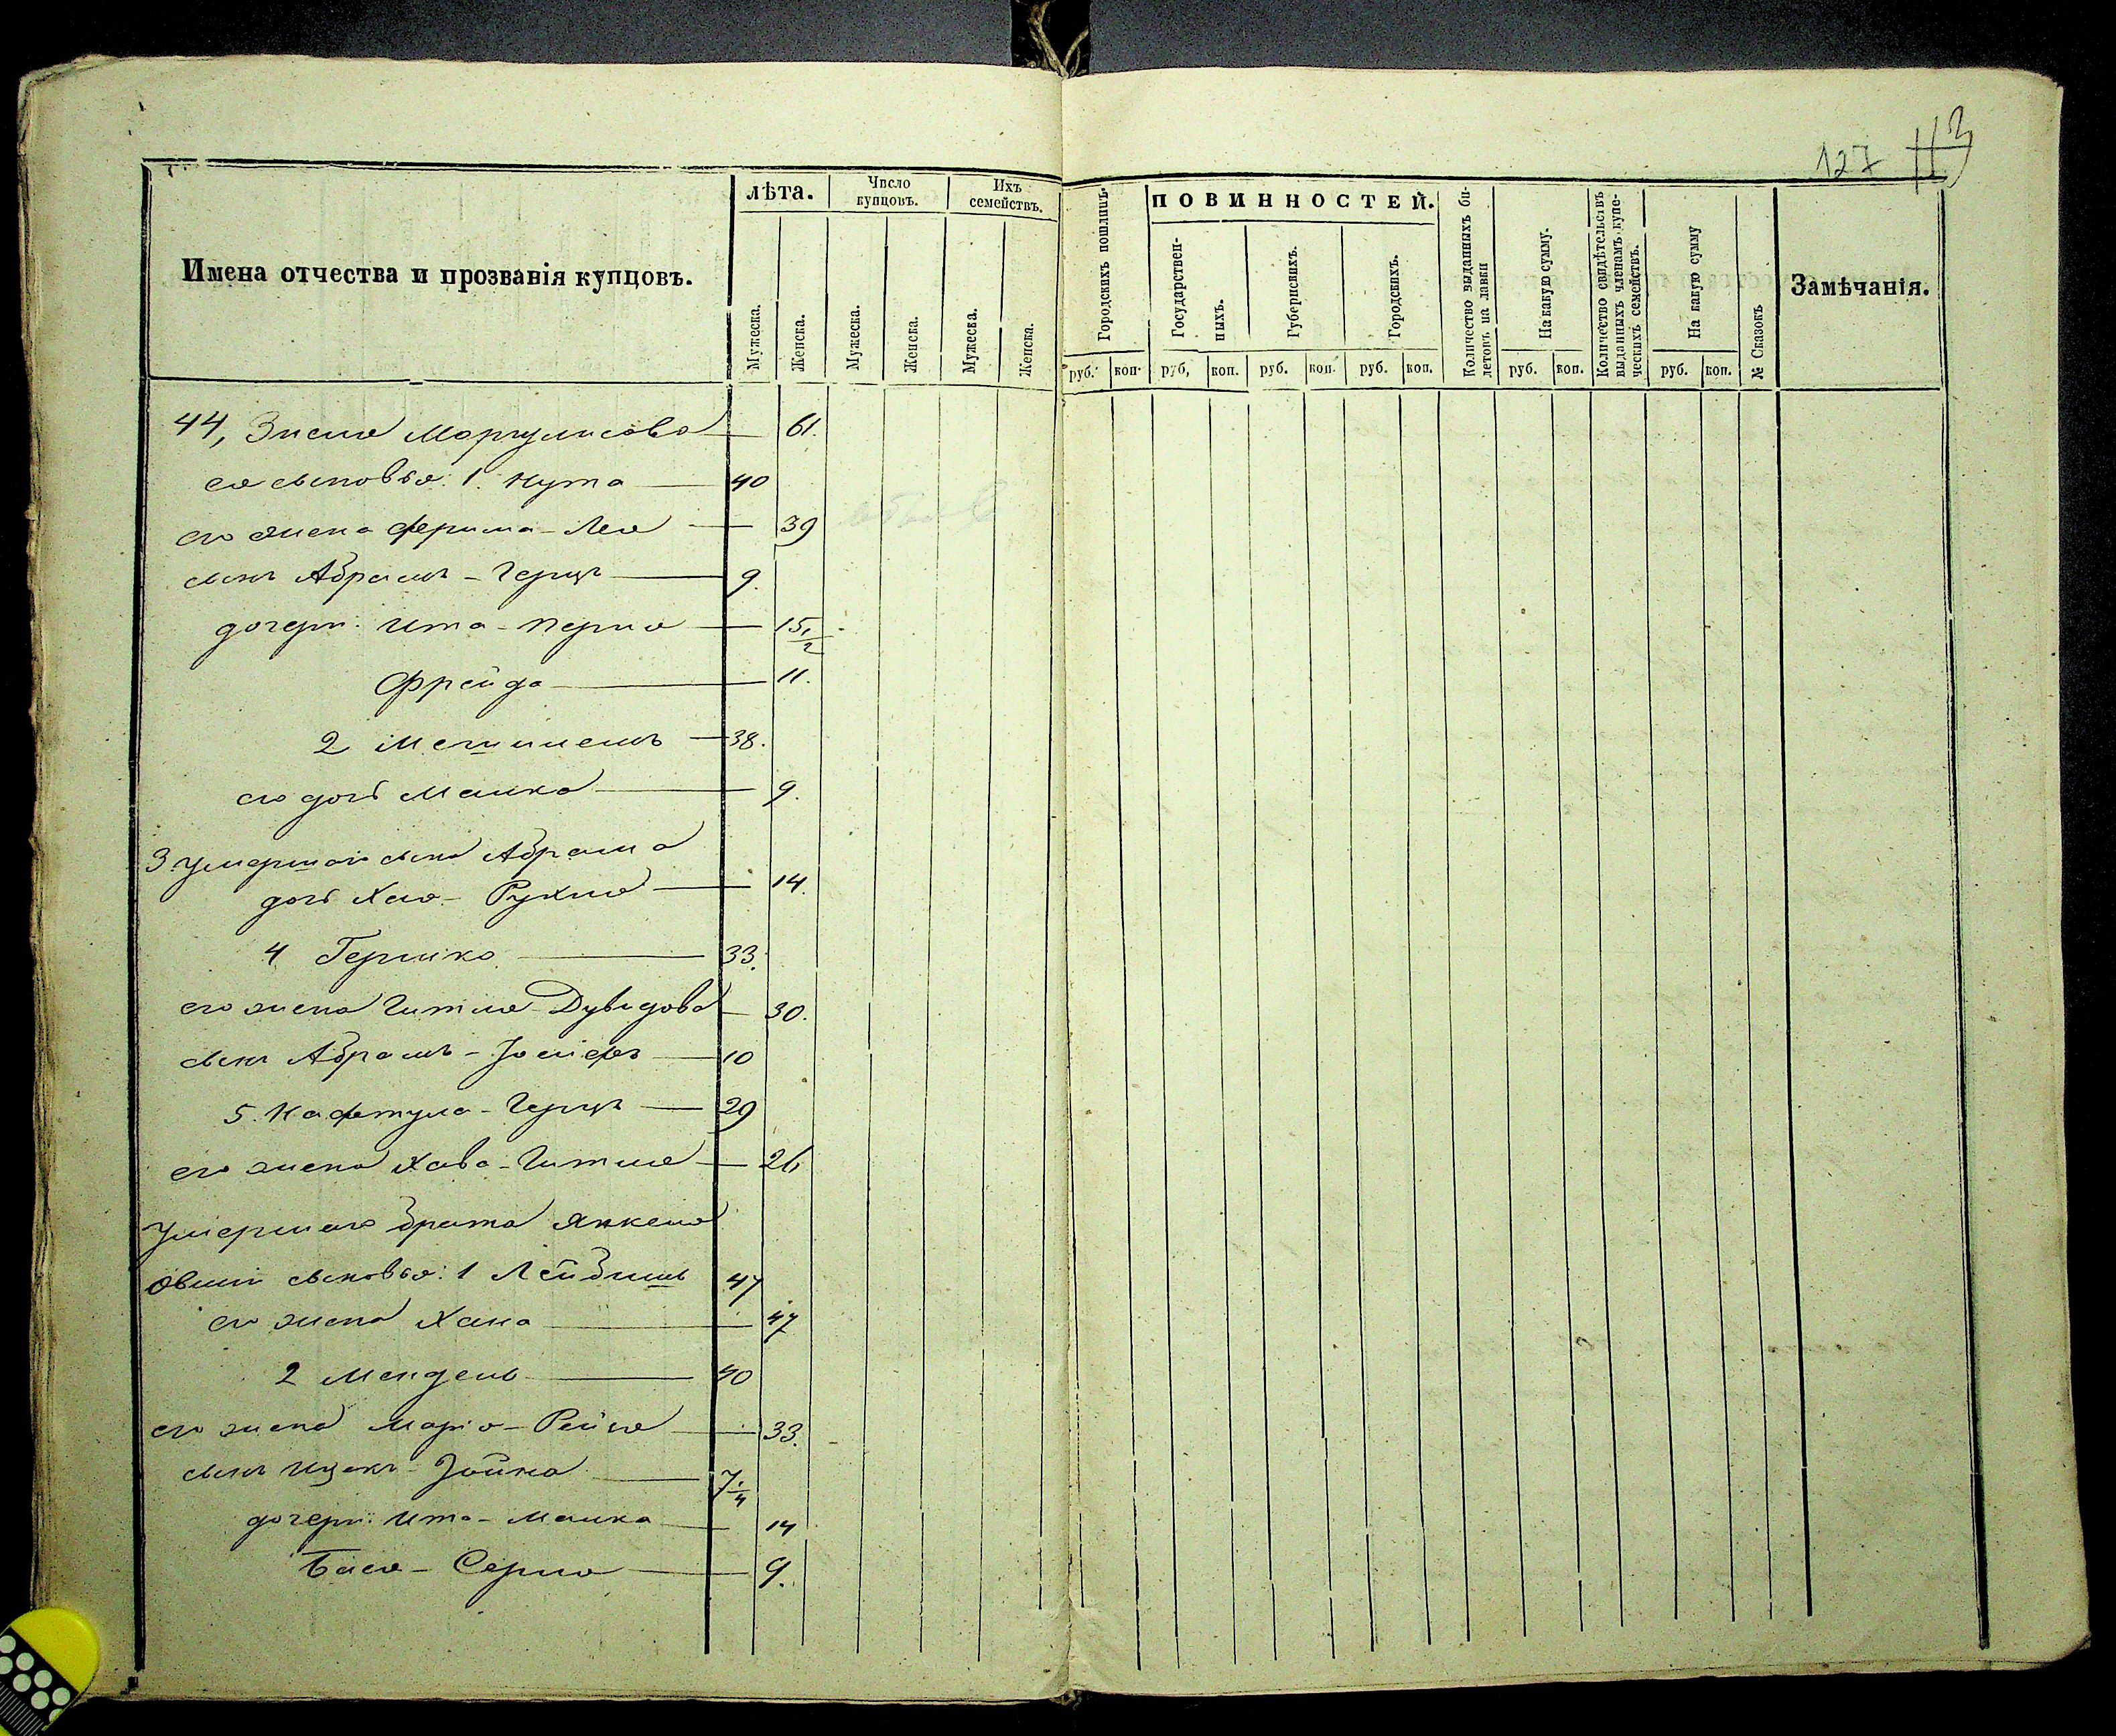 127 113
Имена отчества и прозванія купцовъ.
лѣта.
Мужеска.
Женска.
Число купцовъ.
Мужеска.
Женска.
Ихъ семействъ.
Мужеска.
Женска.
Городскихъ пошлинъ.
руб. коп.
ПОВИННОСТЕЙ.
Государственныхъ.
руб. коп.
Губернскихъ.
руб. коп.
Городскихъ.
руб. коп.
Количество выданныхъ билетовъ на лавки
На какую сумму.
руб. коп.
Количество свидѣтельствъ выданныхъ членамъ купеческихъ семействъ.
На какую сумму
руб. коп.
№ Сказокъ
Замѣчанія.
44, Зисля Маргулисова 61.
ея сыновья: 1. Нута 40
его жена Ферима-Лея 39
сынъ Абрамъ-Герцъ 9.
дочери: Ита-Перля 15 1/2
Фрейда 11.
2 38.
его дочь Малка 9.
3. Умершаго сына Абрама
дочь Хая-Рухля 14.
4 Гершко 33.
его жена Гитля Дувидова 30.
сынъ Абрамъ-Іосифъ 10
5. Нафтула-Герцъ 29
его жена Хава-Гитля 26
Умершаго брата Янкеля
Овши сыновья: 1 Лейбишь 47
его жена Хана 47
2 Мендель 40
его жена Марія-Рейзя 33.
сынъ Ицекъ-Іойна 7 1/4
дочери: Ита-Малка 14
Бася-Серля 9.